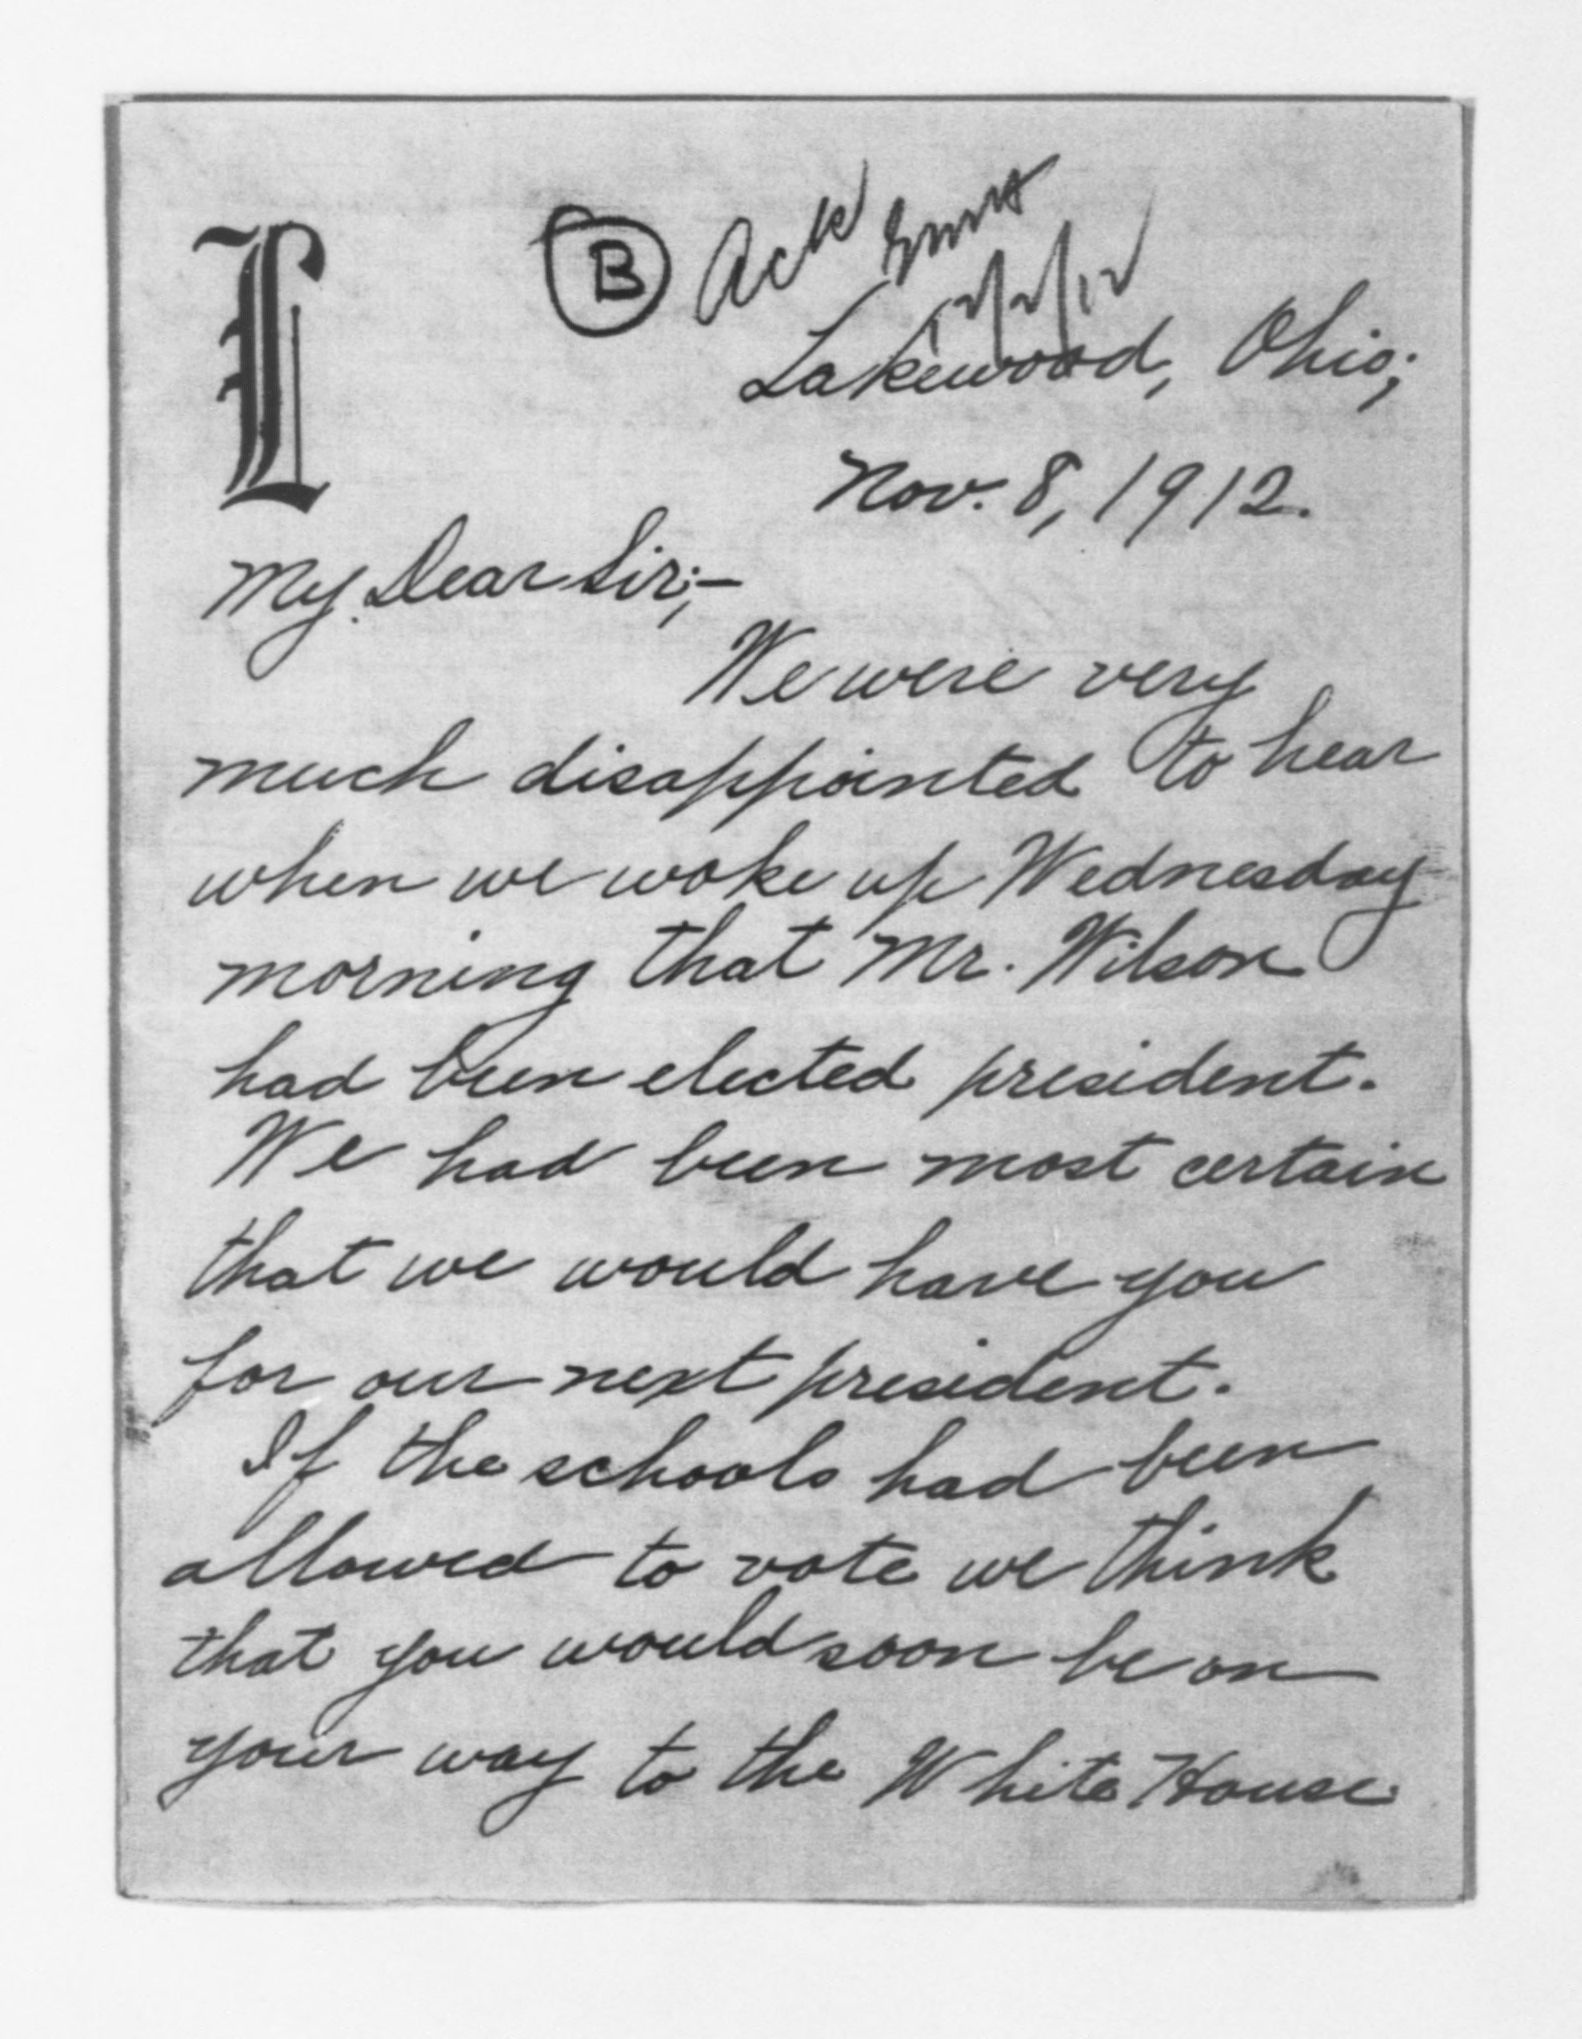 L
B Ack
12/2/12
Lakewood, Ohio;
Nov. 8, 1912.
My Dear Sir;—
We were very
much disappointed to hear
when we woke up Wednesday
morning that Mr. Wilson
had been elected president.
We had been most certain
that we would have you
for our next president.
If the schools had been
allowed to vote we think
that you would soon be on
your way to the White House